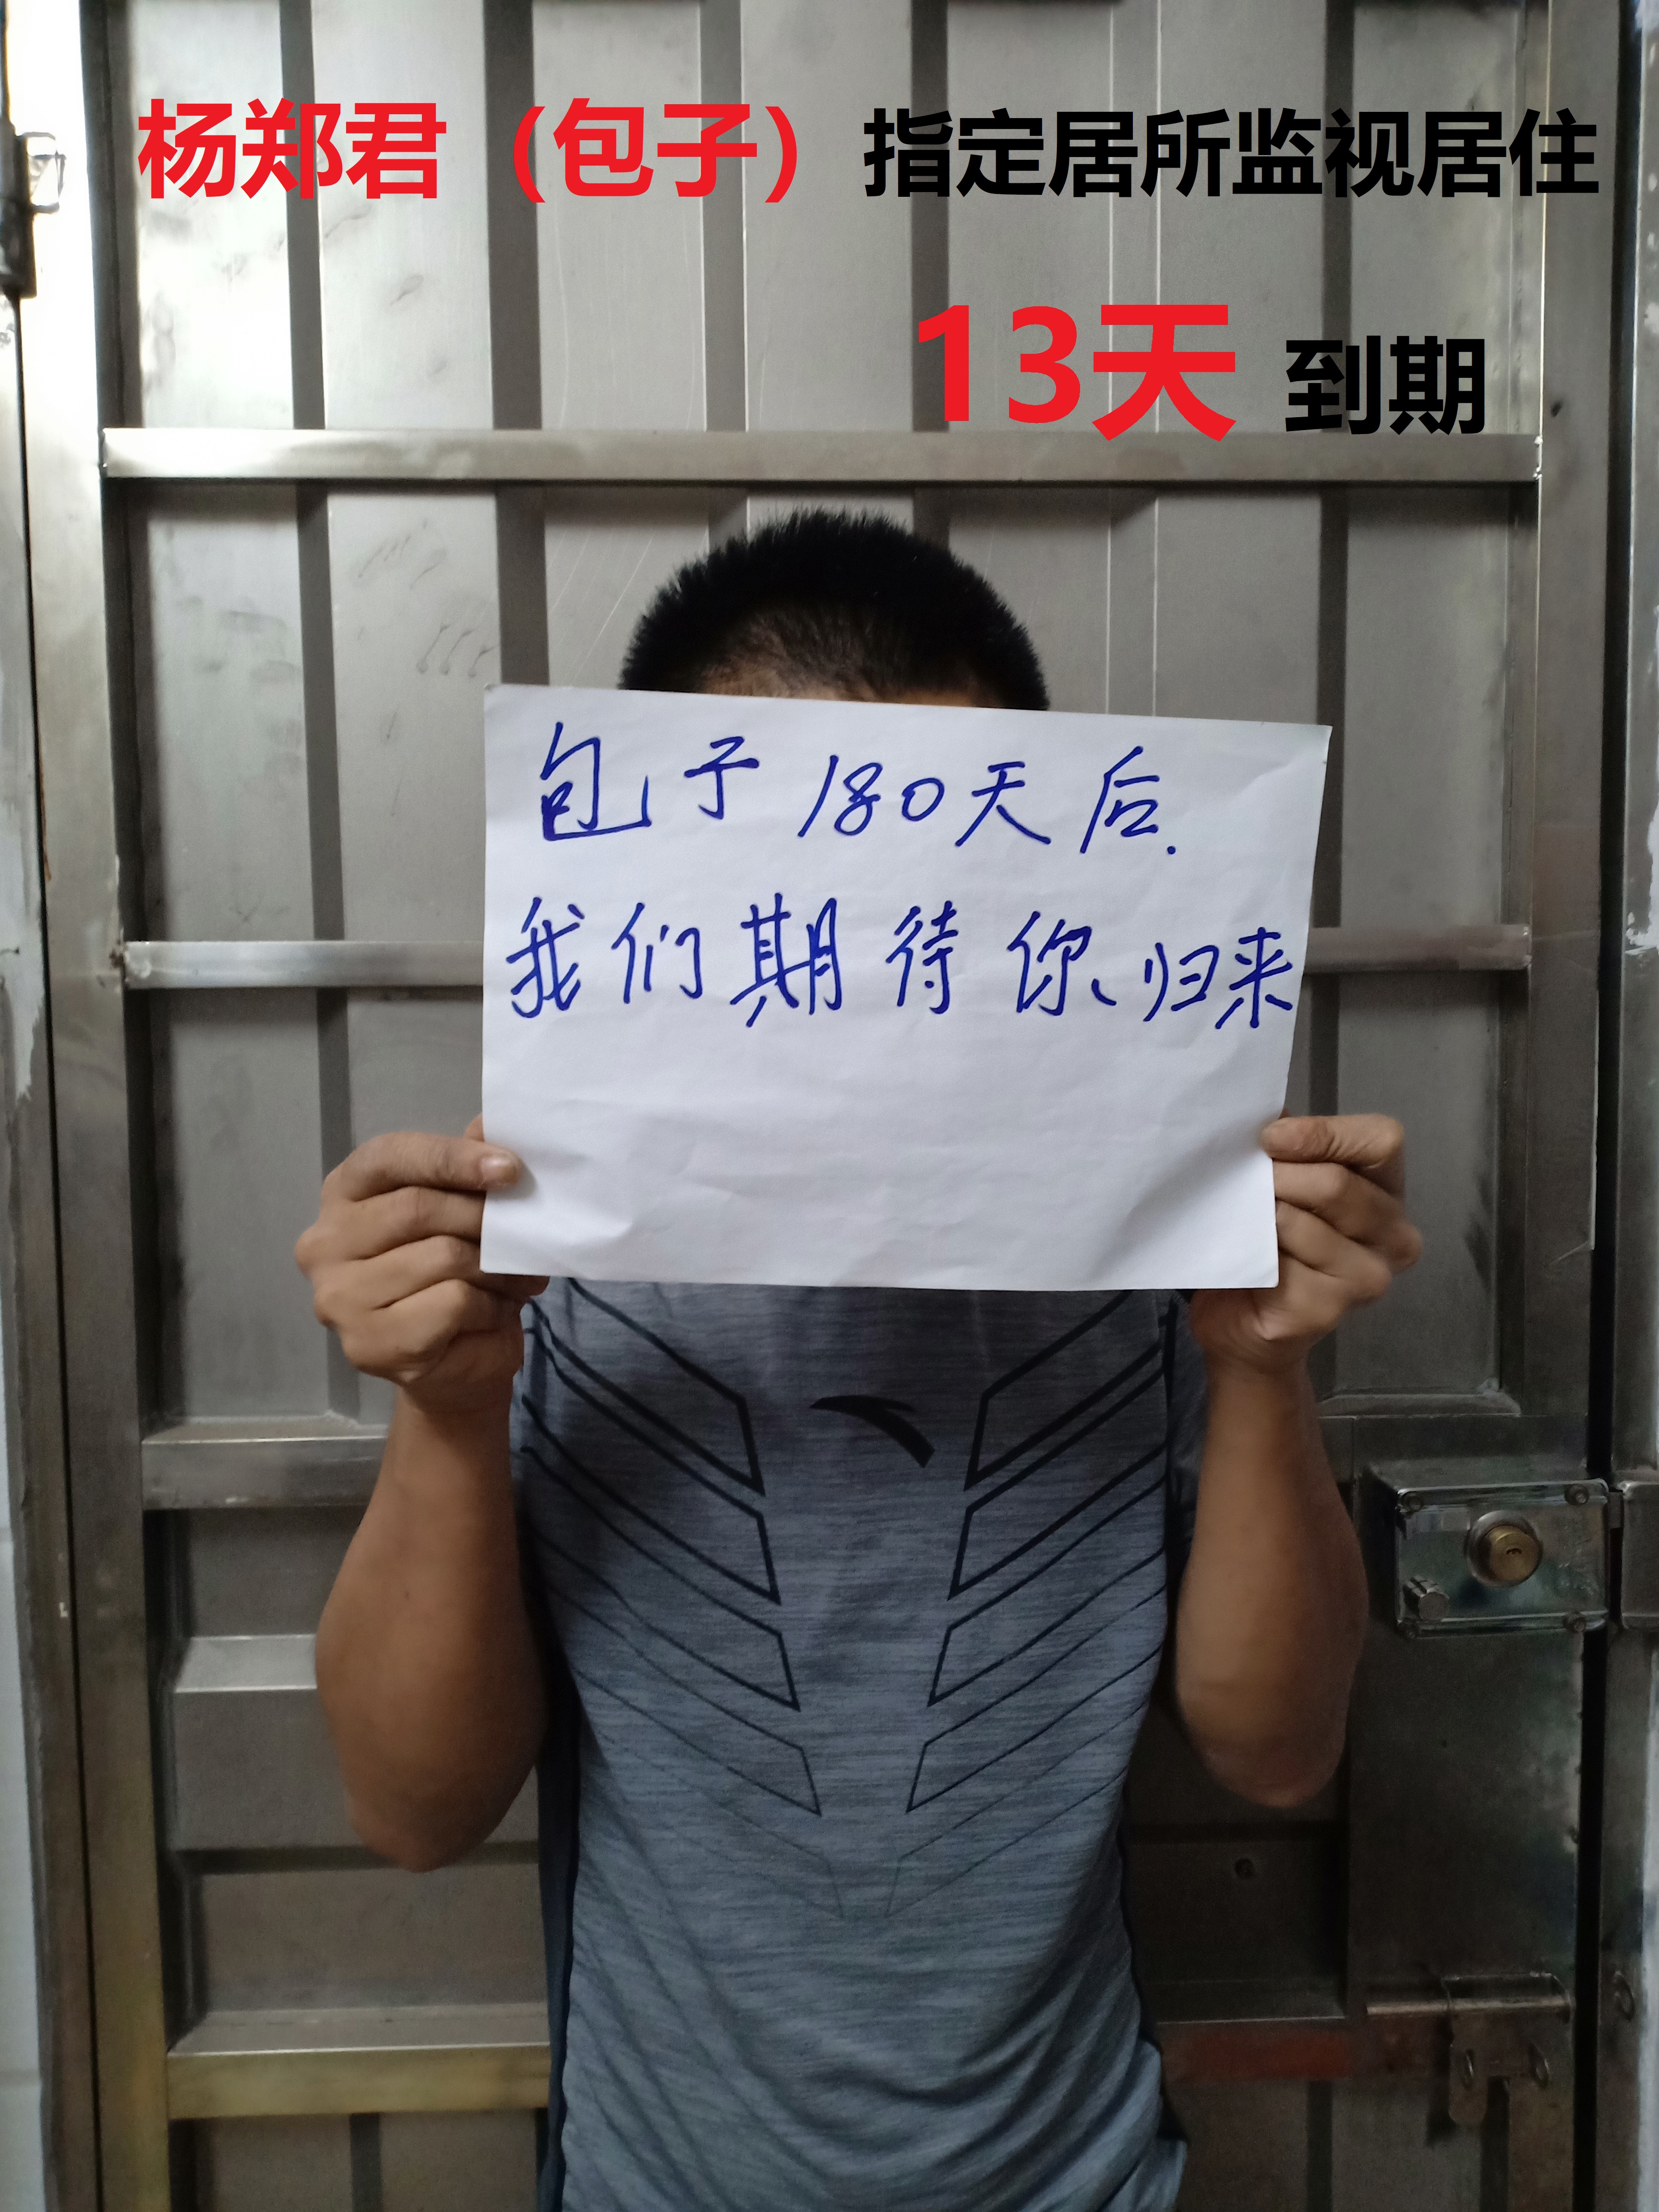 杨郑君（包子）指定居所监视居住
13天 到期
包子180天后.
我们期待你、归来